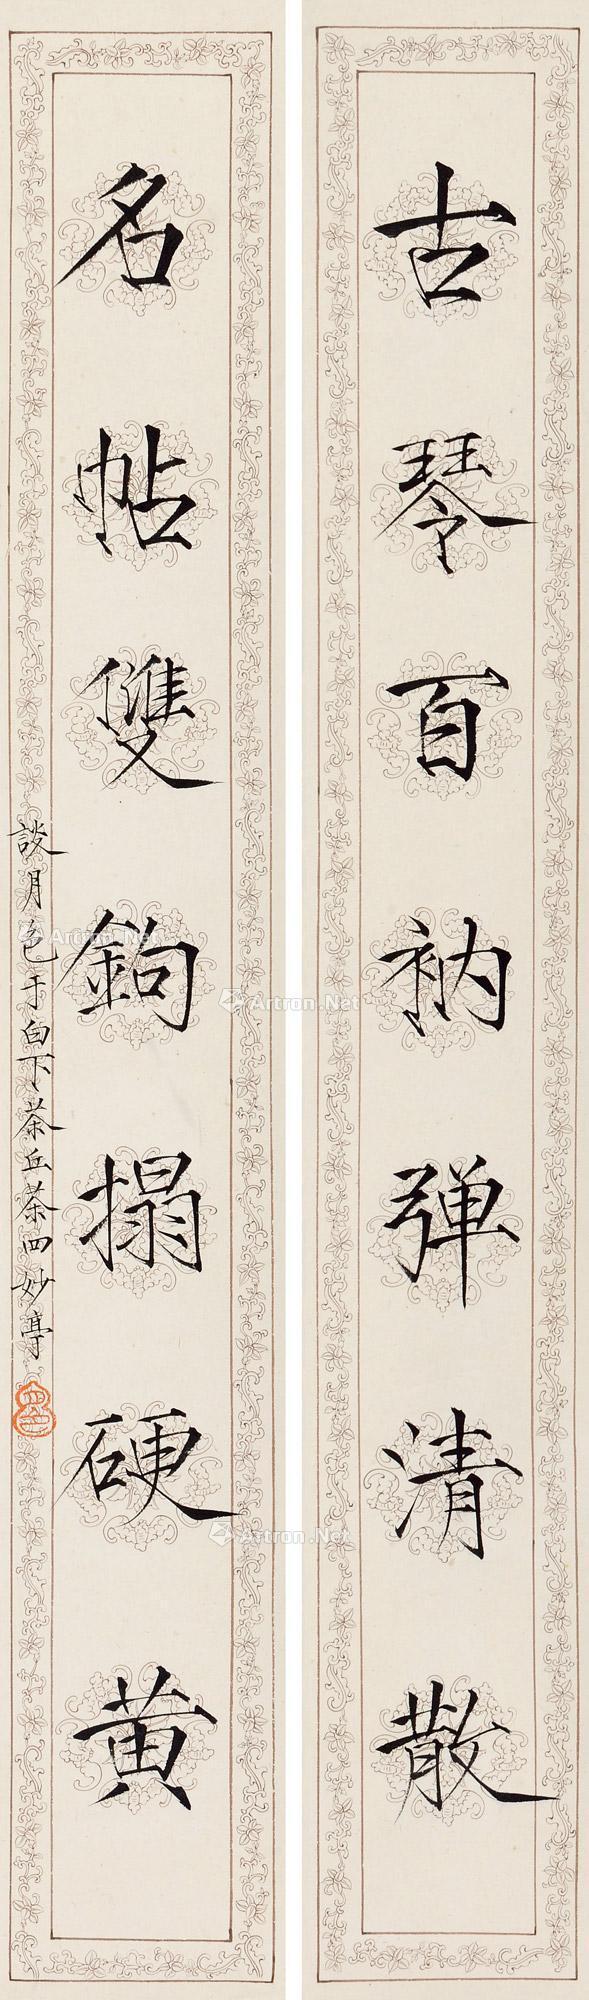 古琴百衲弹清散
名帖雙鉤搨硬黄
談月色于白下茶丘茶四妙亭
Artron.Net
Artron.Net
Artron.Net